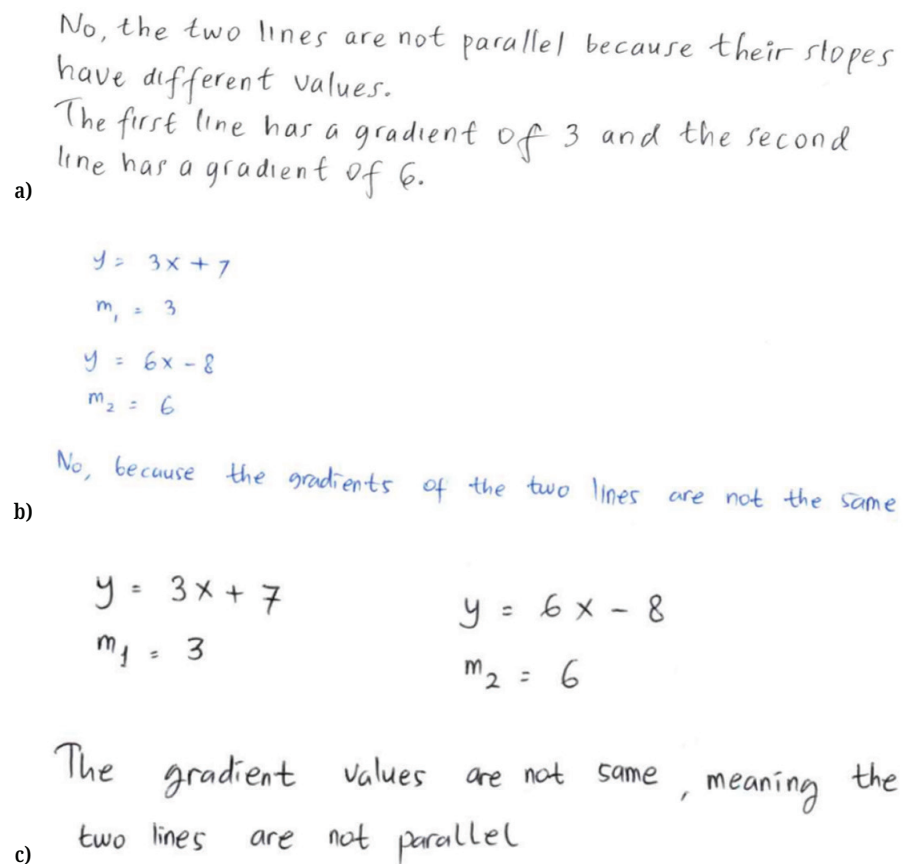 No, the two lines are not parallel because their slopes
have different values.
The first line has a gradient of 3 and the second
line has a gradient of 6.
a)
y = 3x + 7
m₁ = 3
y = 6x - 8
m₂ = 6
No, because the gradients of the two lines are not the same
b)
y = 3x + 7
m₁ = 3
y = 6x - 8
m₂ = 6
The gradient values are not same, meaning the
two lines are not parallel
c)